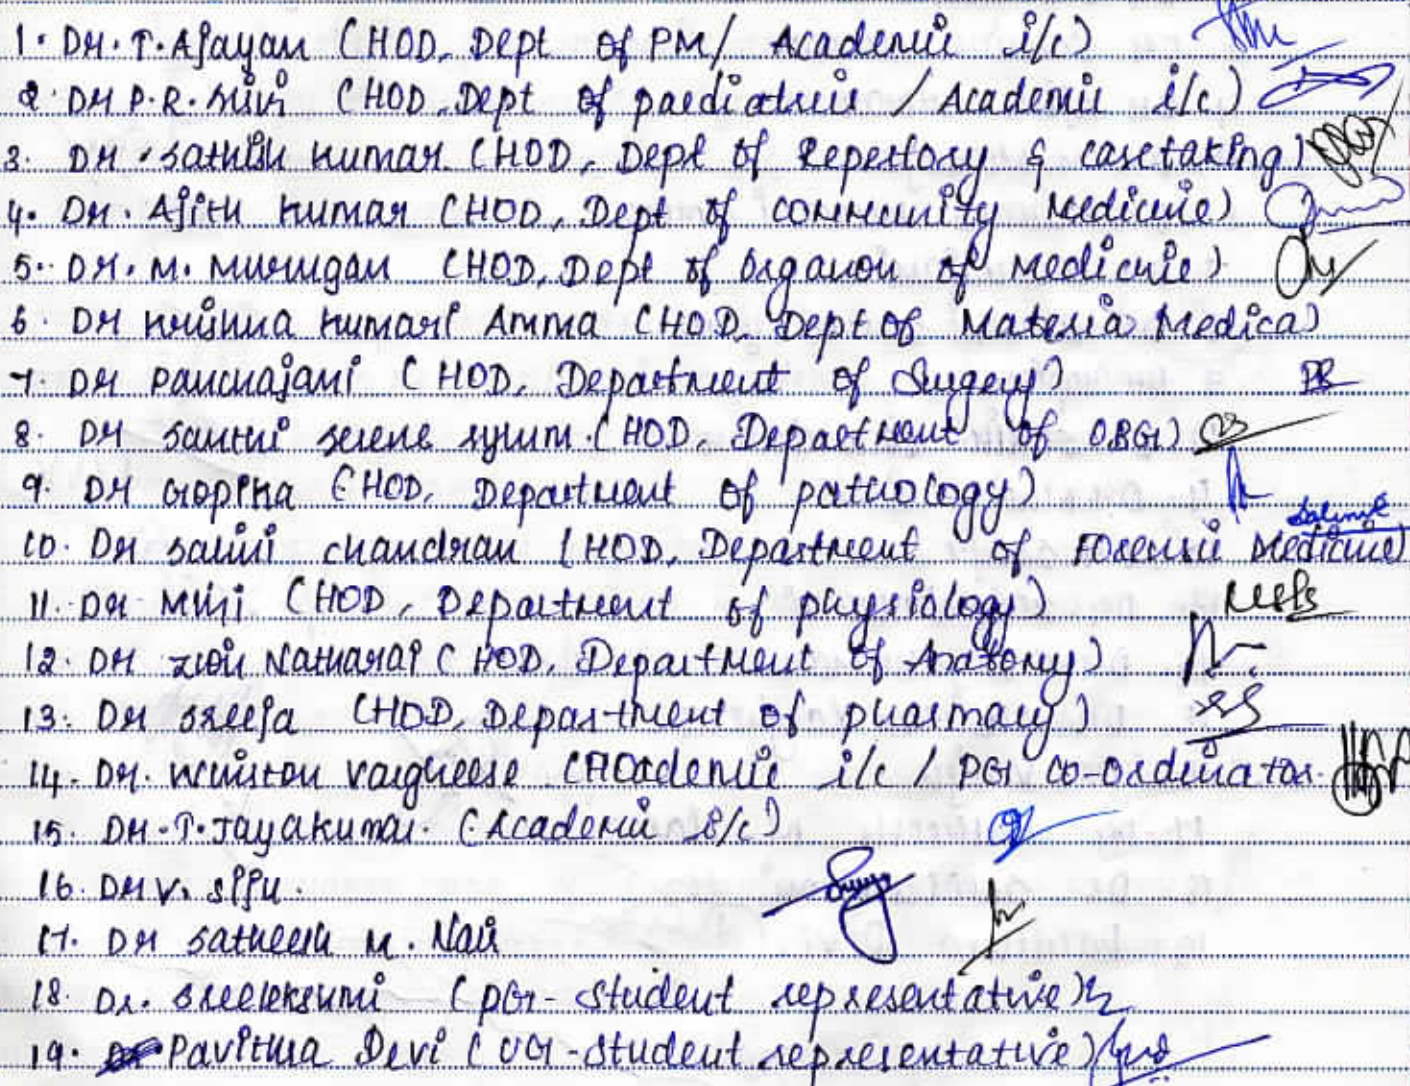 1. Dr. T. Ajayan (HOD, Dept of PM/ Academic i/c)
2. Dr P.R. Sisir (HOD, Dept of paediatrics / Academic i/c)
3. Dr. Sathish Kumar (HOD, Dept of Repertory & casetaking)
4. Dr. Ajith Kumar (HOD, Dept of community Medicine)
5. Dr. M. Murugan (HOD, Dept of Organon of medicine)
6. Dr Krishna Kumari Amma (HOD, Dept of Materia Medica)
7. Dr Panchajani (HOD, Department of Surgery)
8. Dr Santhi Serene Sylum (HOD, Department of OBG)
9. Dr Gopika (HOD, Department of pathology)
10. Dr Salini Chandran (HOD, Department of Forensic Medicine)
11. Dr Mini (HOD, Department of physiology)
12. Dr Zion Natharaj (HOD, Department of Anatomy)
13. Dr Sreeja (HOD, Department of pharmacy)
14. Dr. Winston Vargheese (Academic i/c / PG co-ordinator.
15. Dr. T. Jayakumar. (Academic i/c)
16. Dr V. Siju.
17. Dr Satheesh M. Nair
18. Dr. Sreelekshmi (PG-student representative)
19. Pavithra Devi (UG-student representative)